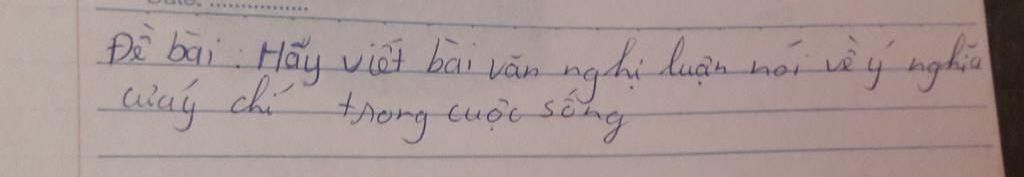 Đề bài: Hãy viết bài văn nghị luận nói về ý nghĩa
của ý chí trong cuộc sống